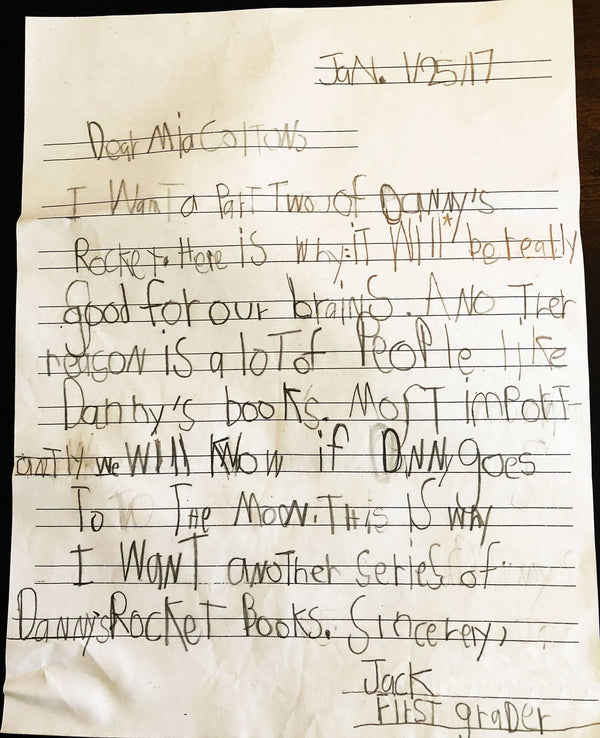 JaN. 1/25/17
Dear Mia Collons
I Want a Part Two of DaNNy's
Rocket. Here is why: iT Will* be really
good for our brains. ANoTher
reason is a loT of People like
Danny's books. MosT imporT-
antly we Will KNow if DNNy goes
To The Moon. THis iS Why
I WanT anoTher series of
Danny's RockeT Books. Sincerely,
Jack
FirsT graDer